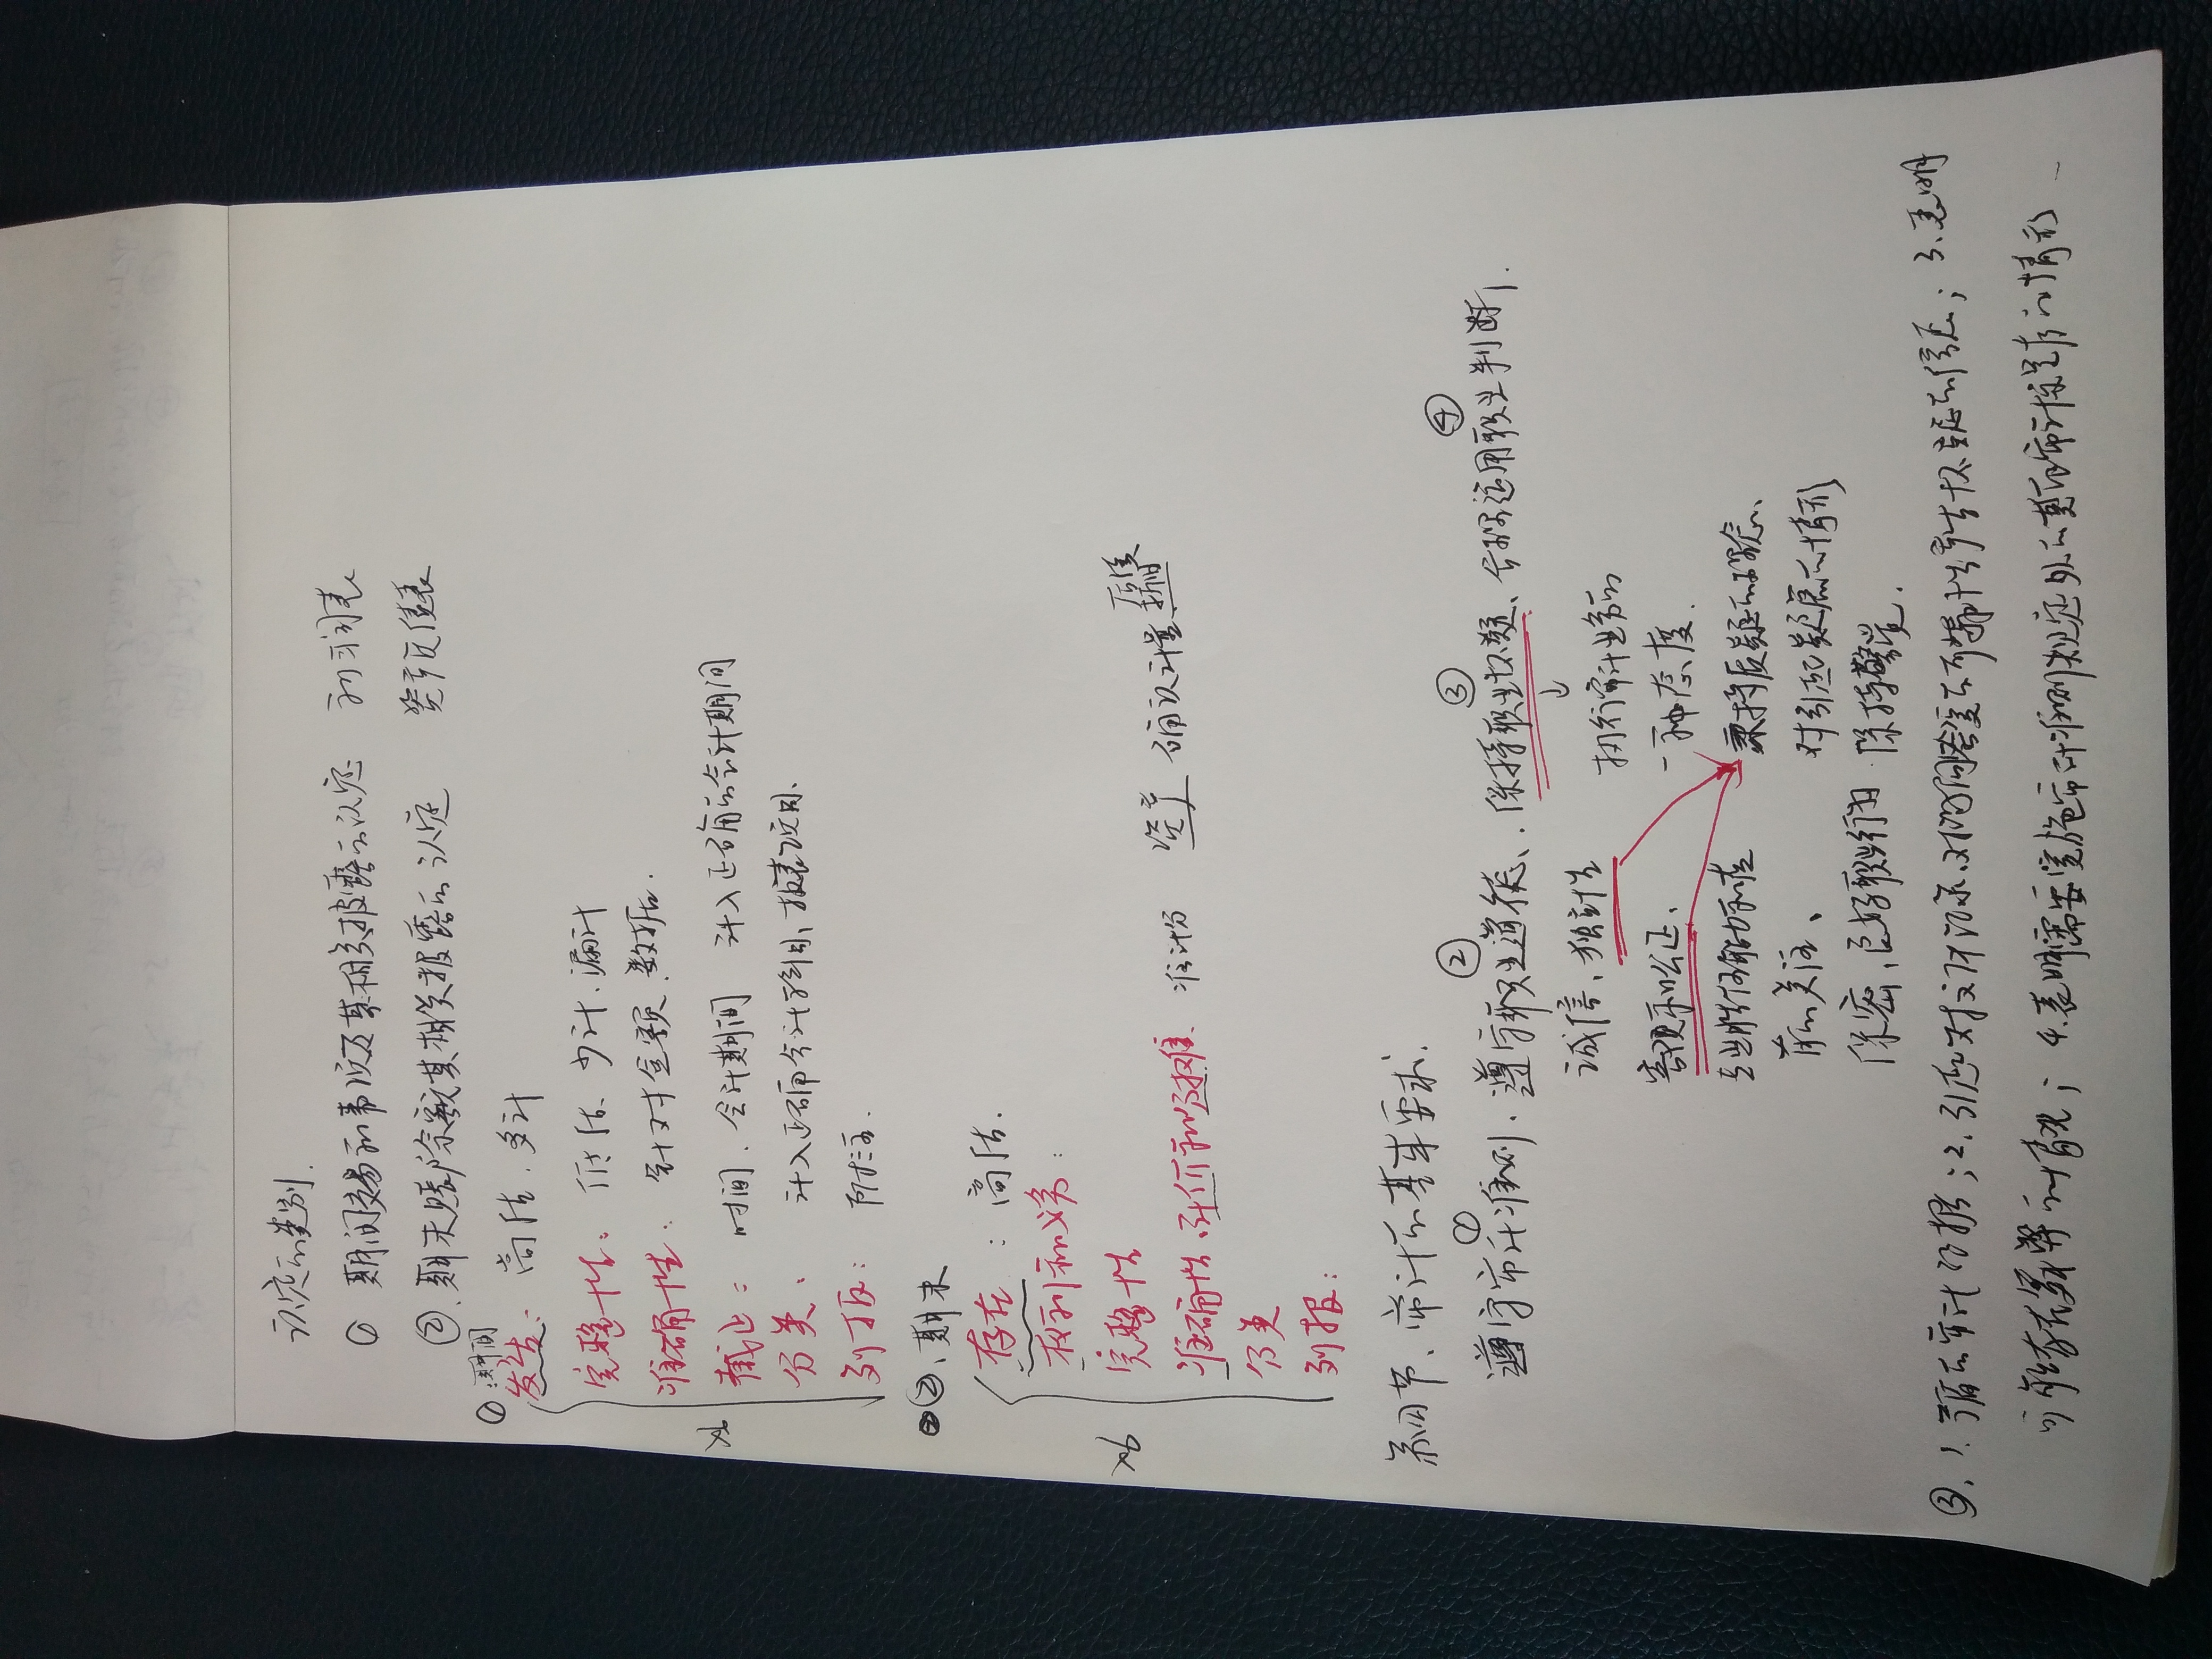 认定的类别.
① 期间交易和事项及其相关披露的认定 利润表
②、期末账户余额及其相关披露的认定 资产负债表
① 期间
发生: 高估、多计
完整性: 低估、少计、漏计
准确性: 针对金额、数据.
截止: 时间、会计期间 计入正确的会计期间
分类、 计入正确会计科目、报表项目、
列报: 附注.
x6
②、期末
存在: 高估.
权利和义务:
完整性
准确性、计价和分摊 准备 确认计量、折旧
分类
列报:
x6
第四节、审计的基本要求.
① ② ③ ④
遵守审计准则、遵守职业道德、保持职业怀疑、合理运用职业判断.
诚信、独立性 执行审计业务的
客观和公正、 一种态度.
专业胜任能力和应 秉持质疑的理念、
有的关注、 对引起疑虑的情形
保密、良好职业行为 保持警觉.
③、1.矛盾的审计证据;2.引起对文件记录、对询问答复的可靠性产生怀疑的信息;3.表明
可能存在舞弊的情况;4.表明需要实施审计准则规定外的其他审计程序的情形